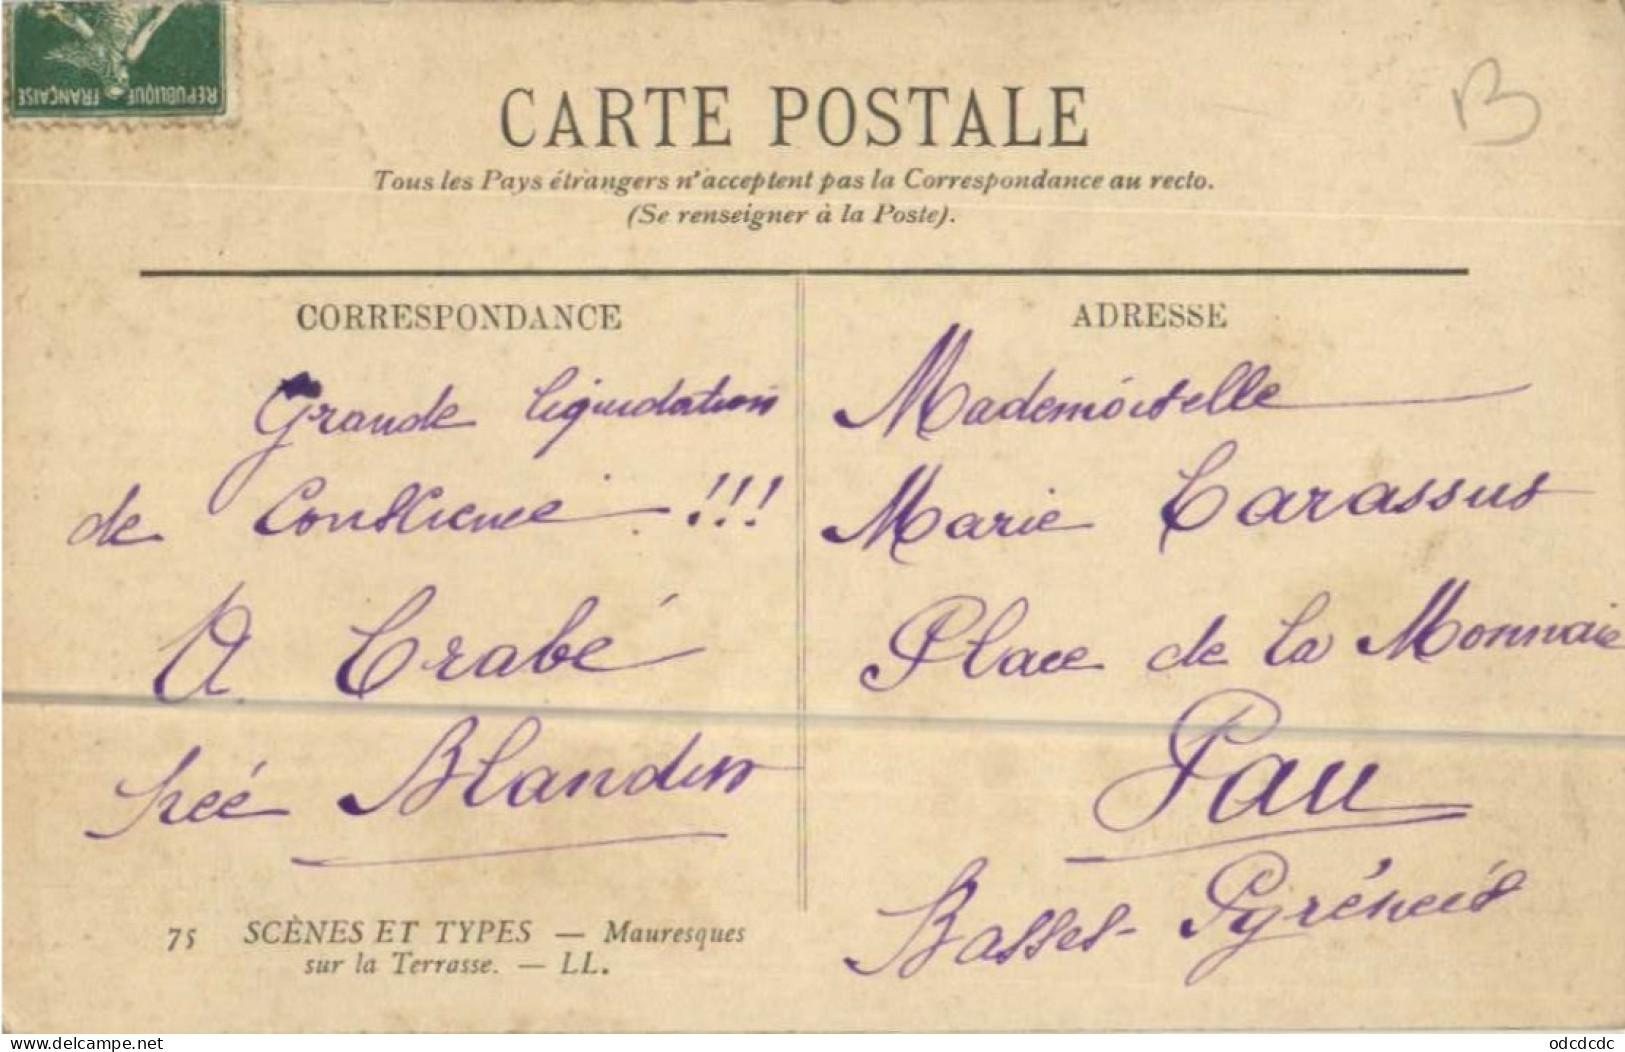 REPUBLIQUE FRANÇAISE
B
CARTE POSTALE
Tous les Pays étrangers n'acceptent pas la Correspondance au recto.
(Se renseigner à la Poste).
CORRESPONDANCE
Grande liquidation
de Conscience !!!
A Crabé
née Blandin
75 SCÈNES ET TYPES — Mauresques
sur la Terrasse. — LL.
ADRESSE
Mademoiselle
Marie Carassus
Place de la Monnaie
Pau
Basses-Pyrénées
delcampe.net
odcdcdc